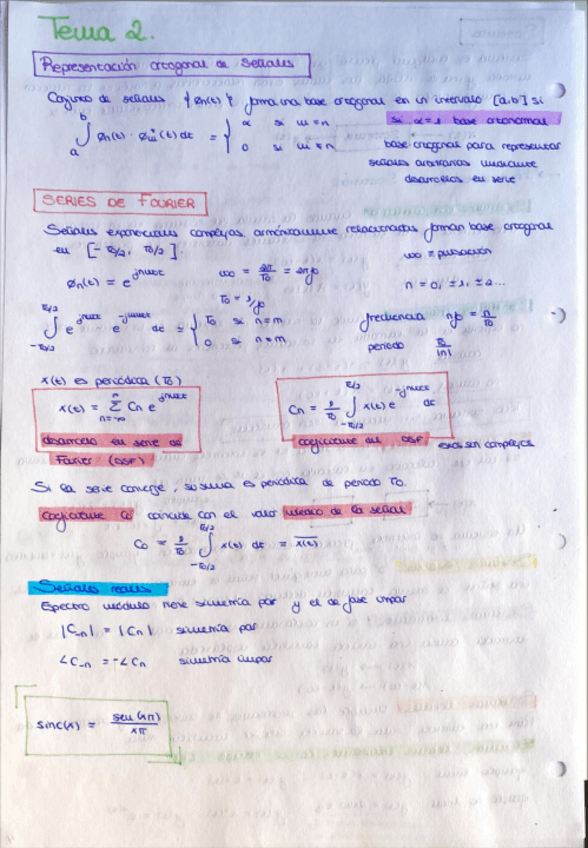 Tema 2.
Representación ortogonal de señales
Conjunto de señales {øn(t)} forma una base ortogonal en un intervalo [a,b] si
∫ₐᵇ øn(t) · øm*(t) dt = { α si m=n
0 si m≠n
si α=1 base ortonormal
base ortogonal para representar
señales arbitrarias mediante
desarrollos en serie
SERIES DE FOURIER
Señales exponenciales complejas, armónicamente relacionadas forman base ortogonal
en [-T0/2, T0/2].
ω0 = pulsación
øn(t) = e^jnω0t
ω0 = 2π/T0 = 2πf0
n = 0, ±1, ±2...
T0 = 1/f0
∫ e^jnω0t e^-jmω0t dt = { T0 si n=m
0 si n≠m
T0/2
-T0/2
frecuencia nf0 = n/T0
periodo T0/|n|
x(t) es periódica (T0)
x(t) = Σ Cn e^jnω0t
n=-∞
Cn = 1/T0 ∫ x(t) e^-jnω0t dt
T0/2
-T0/2
desarrollo en serie de
Fourier (DSF)
coeficiente del DSF
Si la serie converge, su suma es periódica de periodo T0.
Coeficiente C0 coincide con el valor medio de la señal
C0 = 1/T0 ∫ x(t) dt = x(t)
T0/2
-T0/2
Señales reales
Espectro módulo tiene simetría par y el de fase impar
|C-n| = |Cn| simetría par
∠C-n = -∠Cn simetría impar
sinc(x) = sen(xπ)/xπ